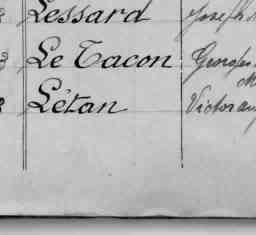 Lessard Joseph
Le Tacon Georges
Létan Victor